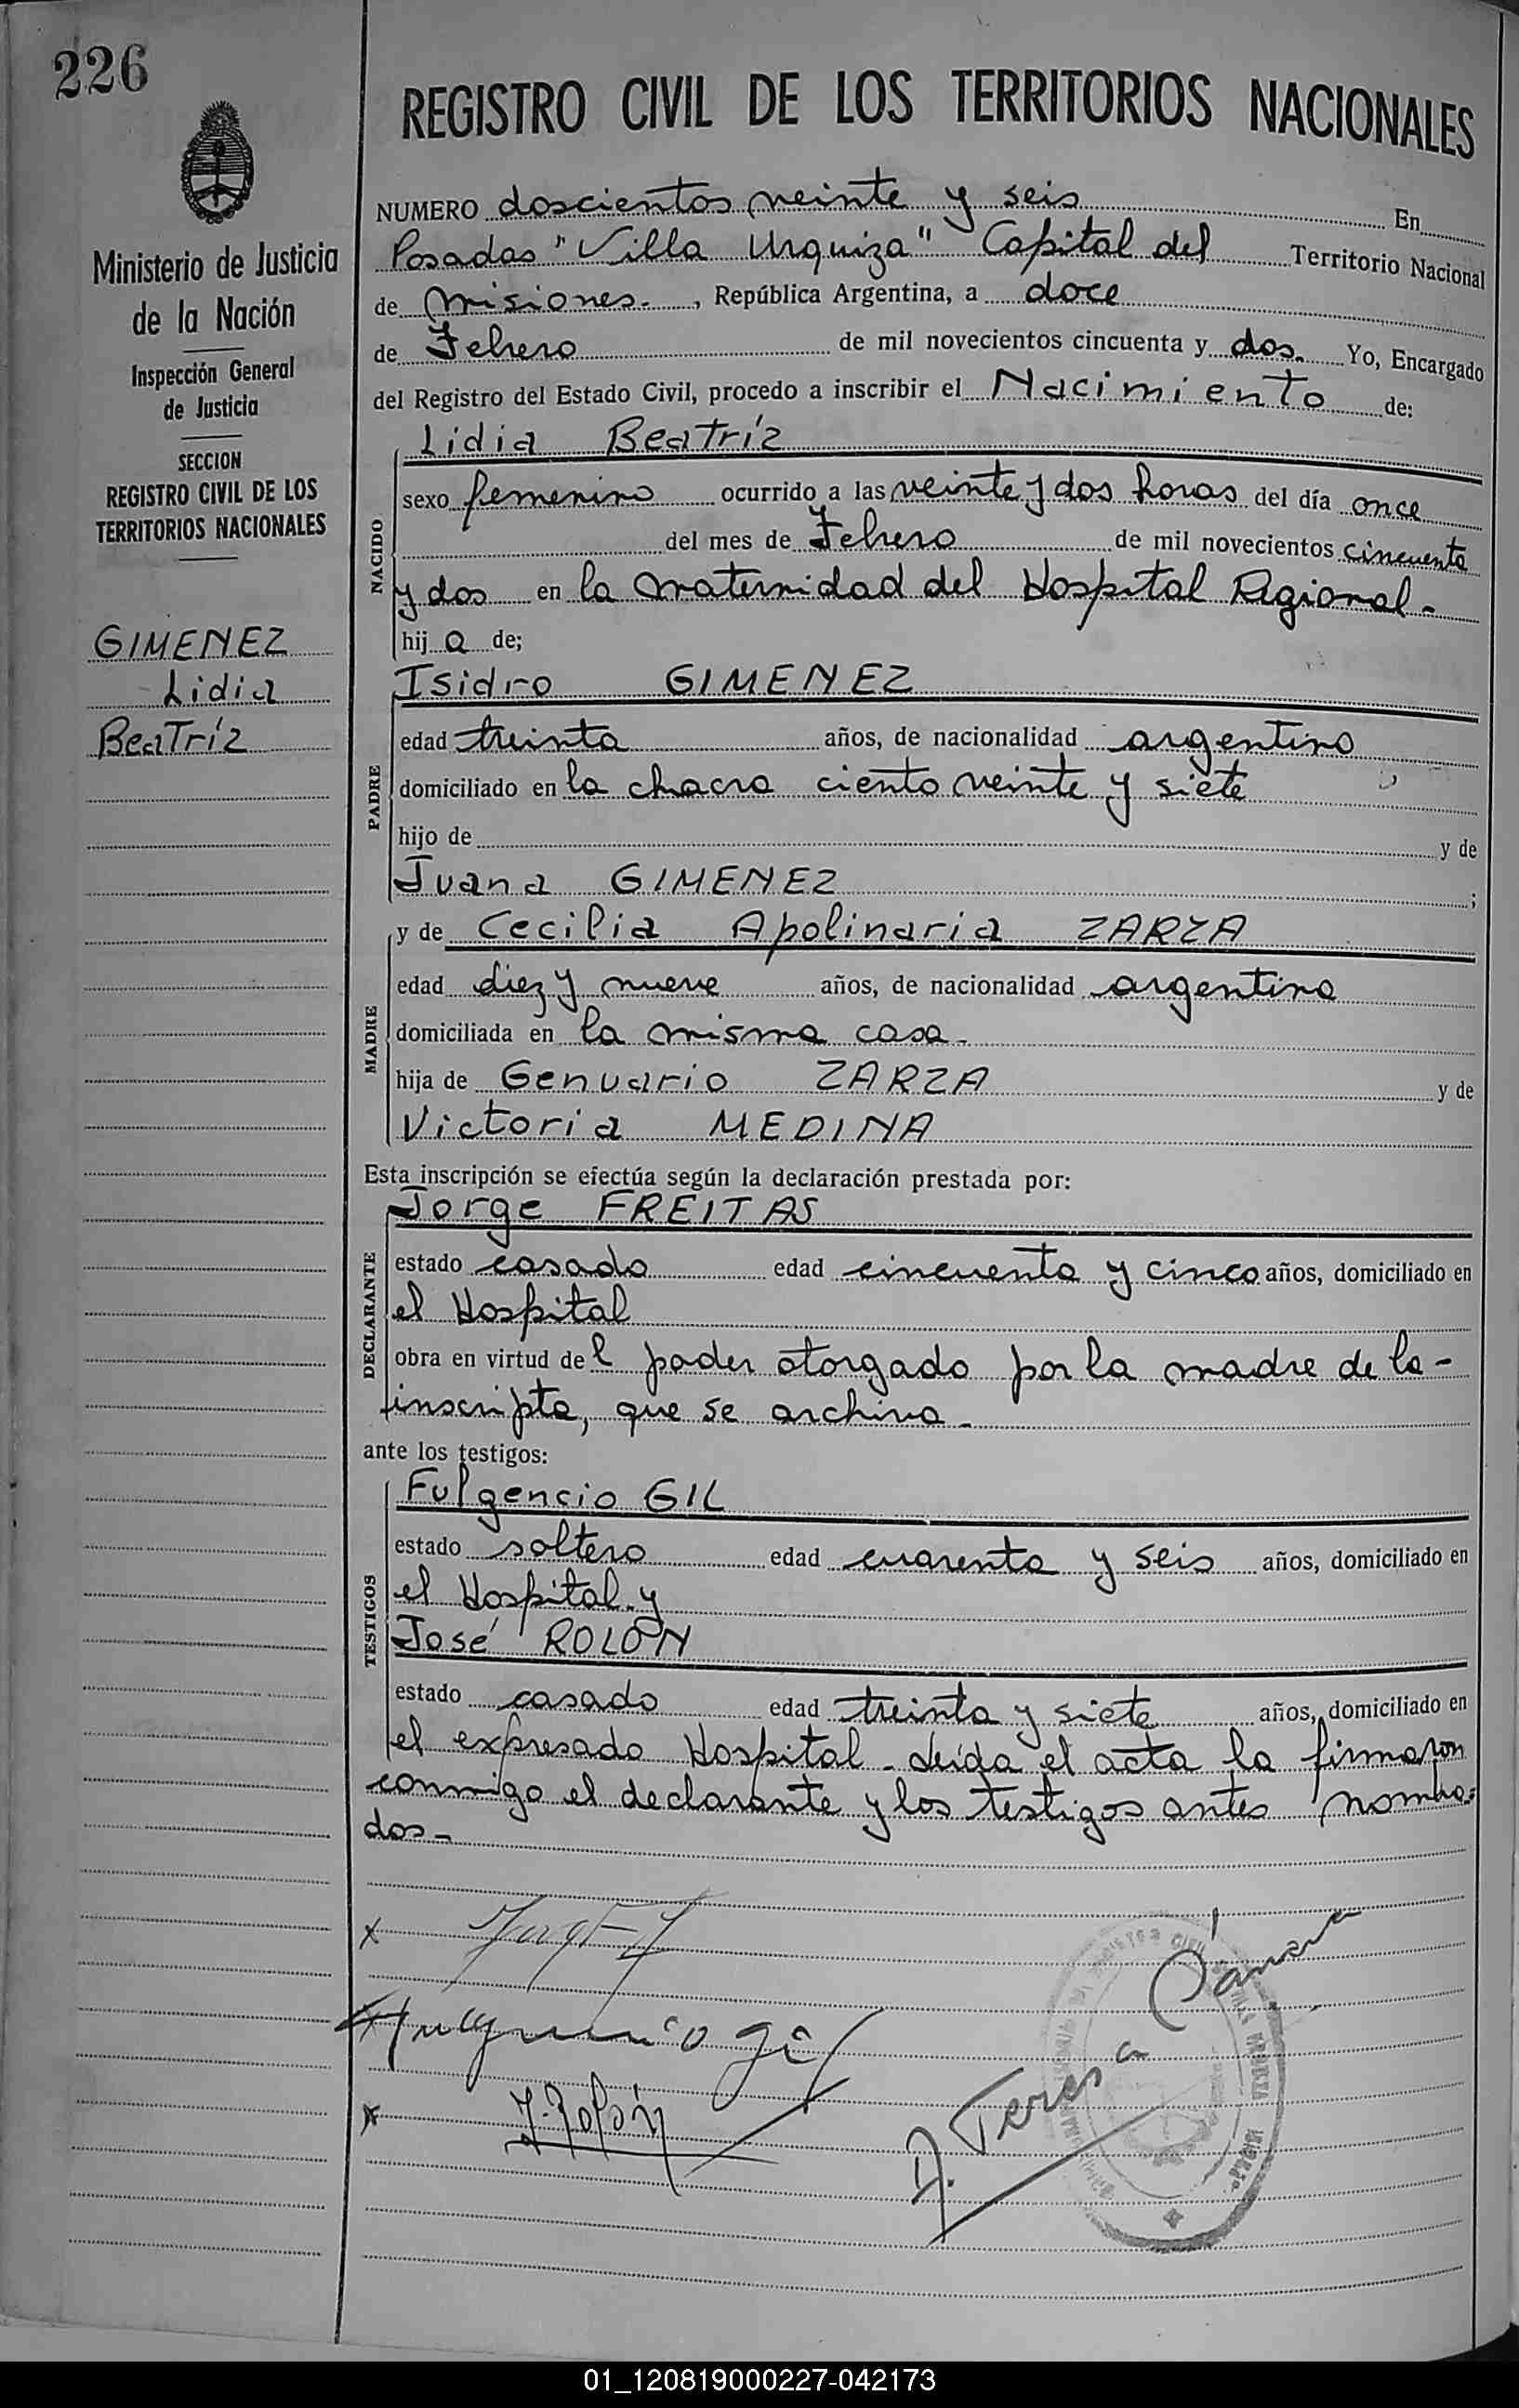 226
REGISTRO CIVIL DE LOS TERRITORIOS NACIONALES
Ministerio de Justicia
de la Nación
Inspección General
de Justicia
SECCION
REGISTRO CIVIL DE LOS
TERRITORIOS NACIONALES
GIMENEZ
Lidia
Beatríz
NUMERO doscientos veinte y seis En
Posadas "Villa Urquiza" Capital del Territorio Nacional
de Misiones. , República Argentina, a doce
de Febrero de mil novecientos cincuenta y dos. Yo, Encargado
del Registro del Estado Civil, procedo a inscribir el Nacimiento de:
Lidia Beatríz
NACIDO
sexo femenino ocurrido a las veinte y dos horas del día once
del mes de Febrero de mil novecientos cincuenta
y dos en la maternidad del Hospital Regional.-
hij a de;
Isidro GIMENEZ
PADRE
edad treinta años, de nacionalidad argentino
domiciliado en la chacra ciento veinte y siete
hijo de y de
Juana GIMENEZ ;
y de Cecilia Apolinaria ZARZA
MADRE
edad diez y nueve años, de nacionalidad argentina
domiciliada en la misma casa.-
hija de Genuario ZARZA y de
Victoria MEDINA
Esta inscripción se efectúa según la declaración prestada por:
Jorge FREITAS
DECLARANTE
estado casado edad cincuenta y cinco años, domiciliado en
el Hospital
obra en virtud de l poder otorgado por la madre de la-
inscripta, que se archiva.-
ante los testigos:
Fulgencio GIL
TESTIGOS
estado soltero edad cuarenta y seis años, domiciliado en
el Hospital y
José ROLÓN
estado casado edad treinta y siete años, domiciliado en
el expresado Hospital. Leída el acta la firmaron
conmigo el declarante y los testigos antes nombra=
dos.-
Fulgencio Gil
J. Rolón
A. Teresa Cámara
01_120819000227-042173